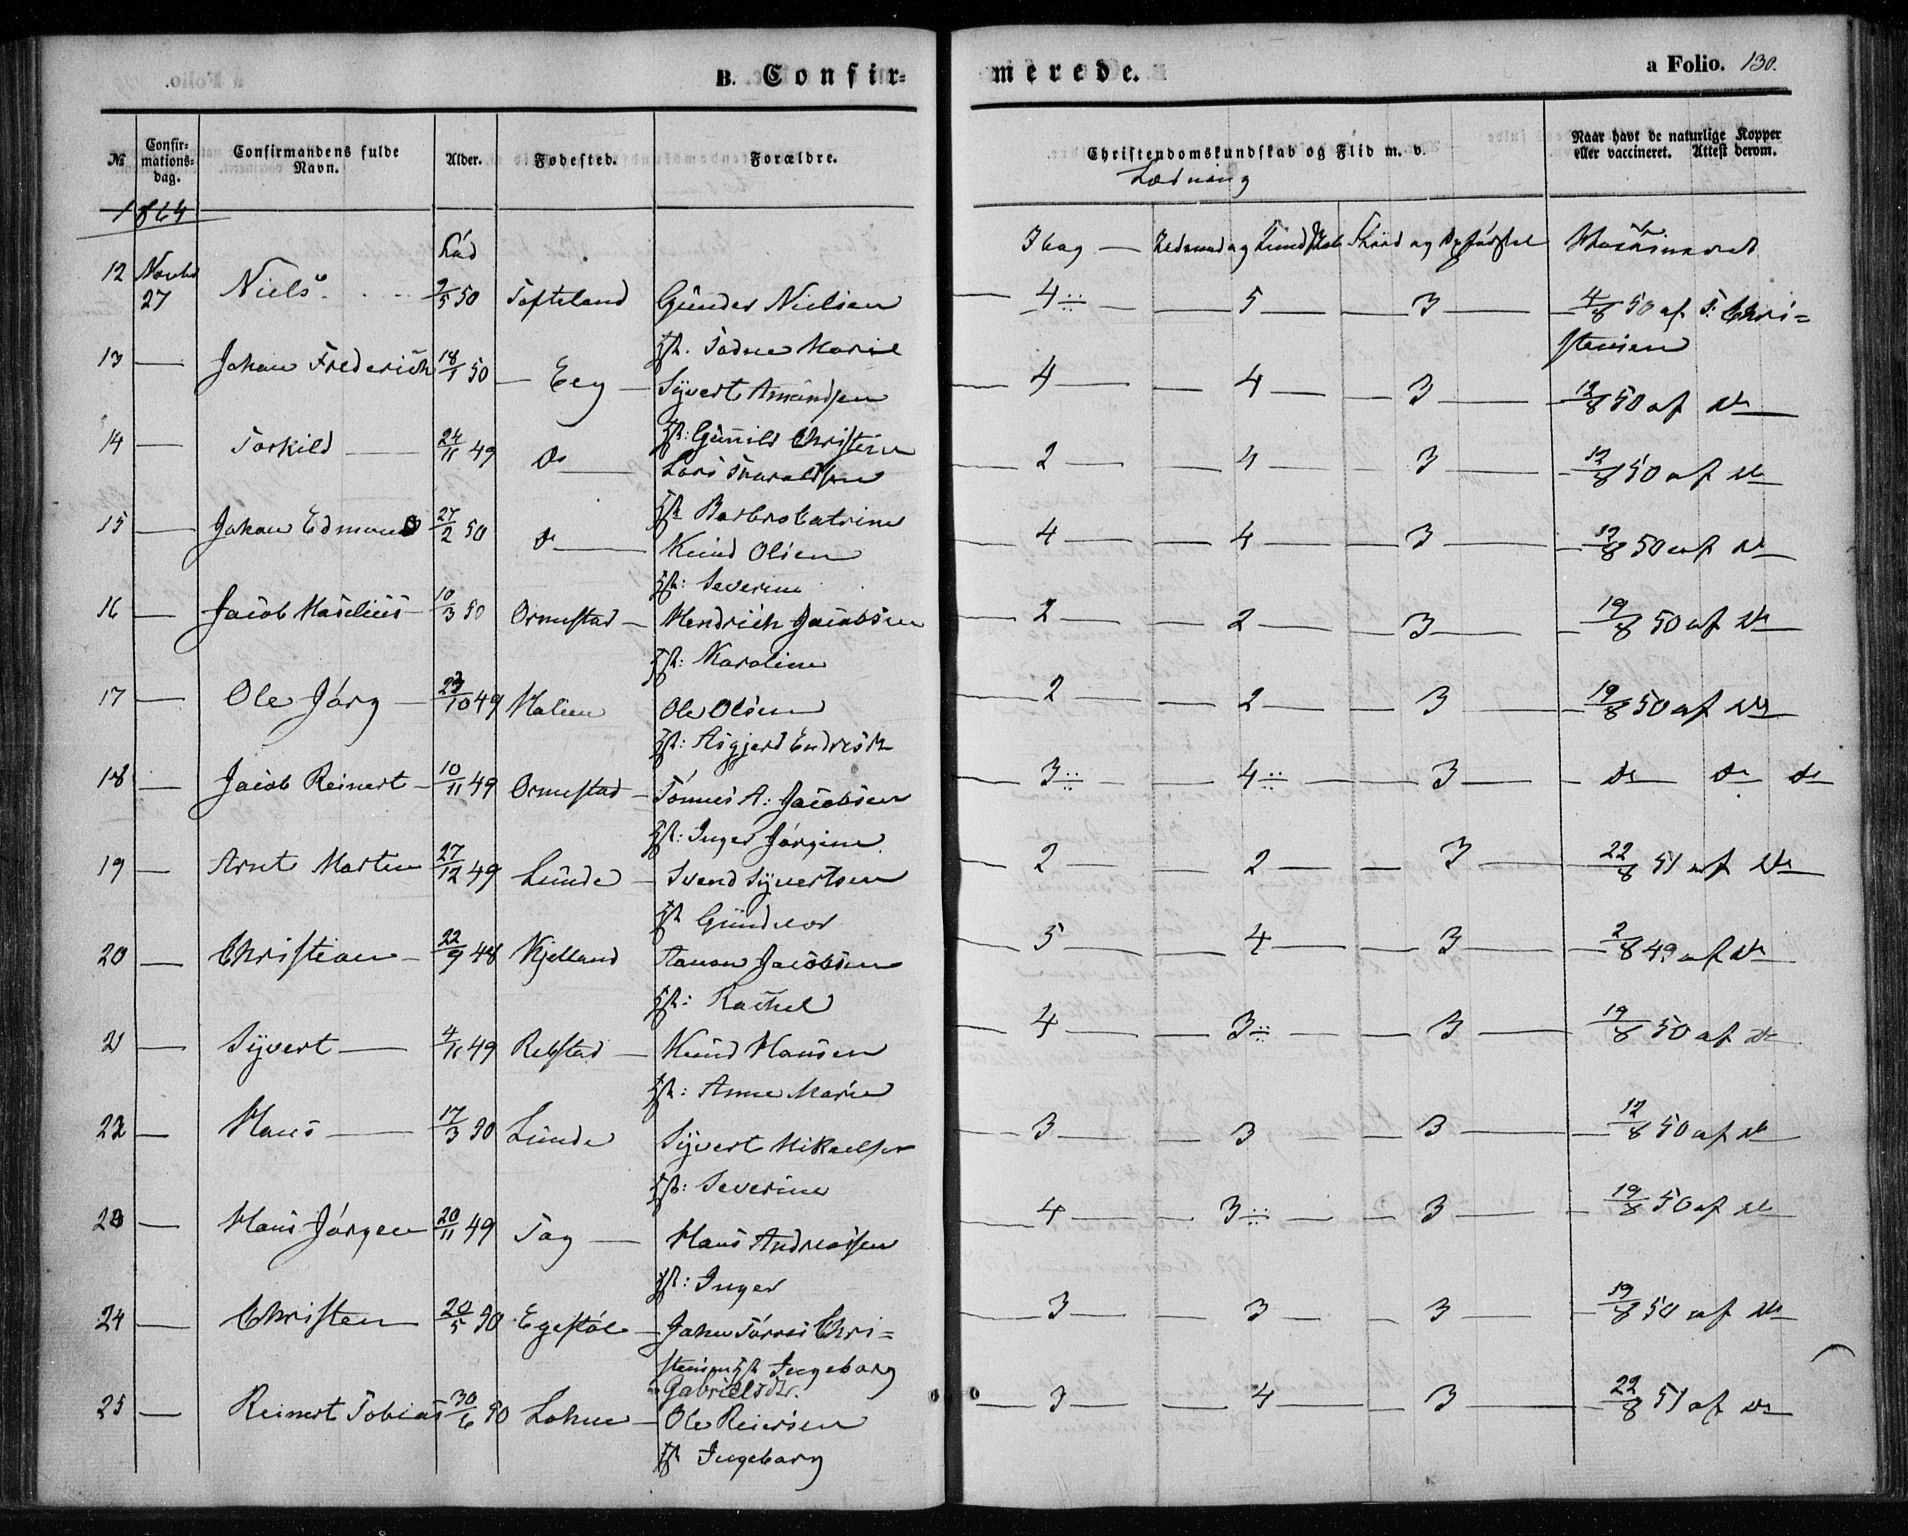 B. Confir=
merede.
a Folio. 130.
№ Confir=mations=dag. Confirmandens fulde Navn. Alder. Fødested. Forældre. Christendomskundskab og Flid m. v. Naar havt de naturlige Kopper eller vaccineret. Attest derom.
1864
Læsning
Ibog Udenad og Kundskab Flid og Opførsel Vaksineret
Fød
12 Novbr 27 Niels 9/5 50 Tofteland Gunder Nielsen 4 5 3 4/8 50 af T. Chri=
Hst. Tadne Marie stensen
13 Johan Frederich 18/1 50 Eeg Syvert Amundsen 4 4 3 12/8 50 af do
Hst: Gunild Christine
14 Torkild 24/11 49 do Lars Tharaldsen 2 4 3 12/8 50 af do
Hst: Barbro Catrine
15 Johan Edmund 27/2 50 do Knud Olsen 4 4 3 12/8 50 af do
Hst: Severine
16 Jacob Maselius 10/3 50 Ormestad Hendrich Jacobsen 2 2 3 19/8 50 af do
Hst: Karoline
17 Ole Jørg 23/10 49 Ole Olsen 2 2 3 19/8 50 af do
Hst: Asgjerd Endresdr
18 Jacob Reinert 10/11 49 Ormestad Tönnes A: Jacobsen 3 4 3 do do do
Hst: Inger Jørgine
19 Arnt Marten 27/12 49 Lunde Svend Syvertsen 2 2 3 22/8 51 af do
Hst Gundvor
20 Christian 22/9 48 Kjelland Aanon Jacobsen 5 4 3 2/8 49 af do
Hst: Rachel
21 Syvert 4/11 49 Rebstad Knud Hansen 4 3 3 19/8 50 af do
Hst: Anne Marie
22 Hans 17/3 50 Lunde Syvert Mikaelsen 3 3 3 12/8 50 af do
Hst: Severine
23 Hans Jørgen 20/11 49 Tag Hans Andreassen 4 3 3 19/8 50 af do
Hst: Inger
24 Christen 20/5 50 Egestøl John Tørres Chri= 3 3 3 19/8 50 af do
stensen Hst Ingeborg
Gabrielsdtr.
25 Reinert Tobias 30/6 50 Lohne Ole Reiersen 3 4 3 22/8 51 af do
Hst Ingeborg